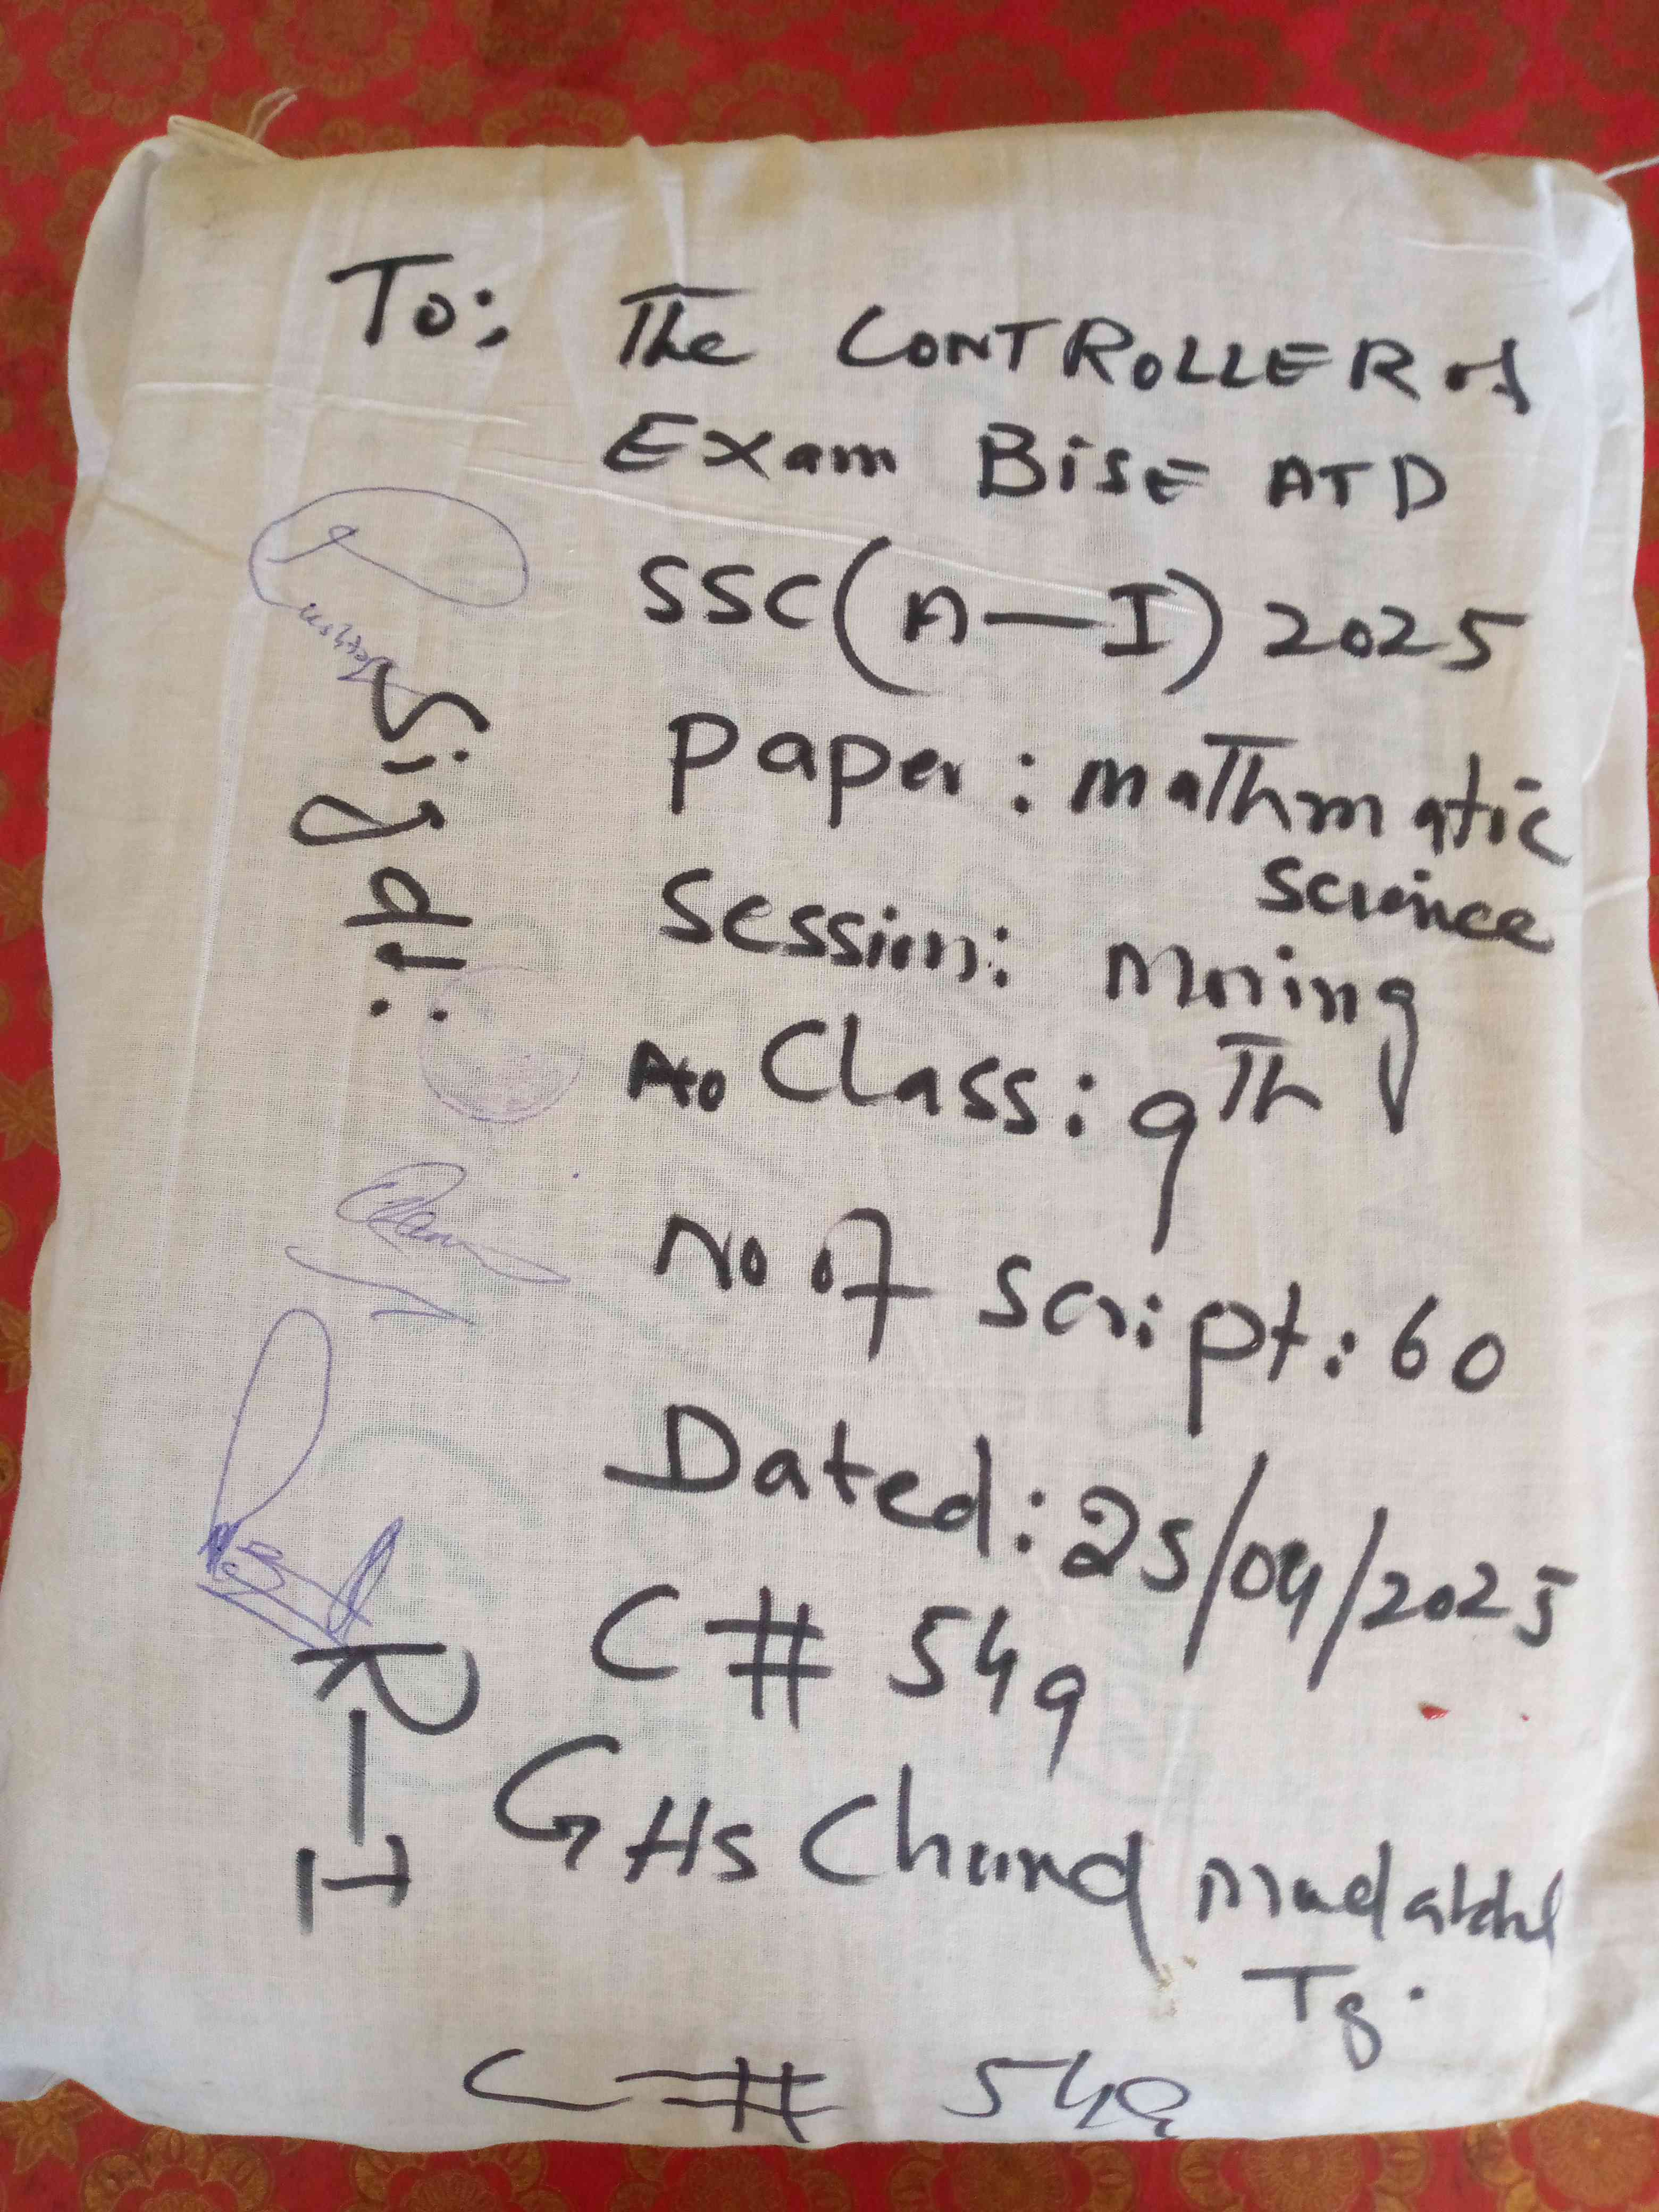 To: The CONTROLLER of
Exam BiSE ATD
SSC (A-I) 2025
Paper: mathmatic
Science
Session: Morning
Class: 9Th
No of script: 60
Dated: 25/04/2025
C# 549
GHS Chund
C# 549